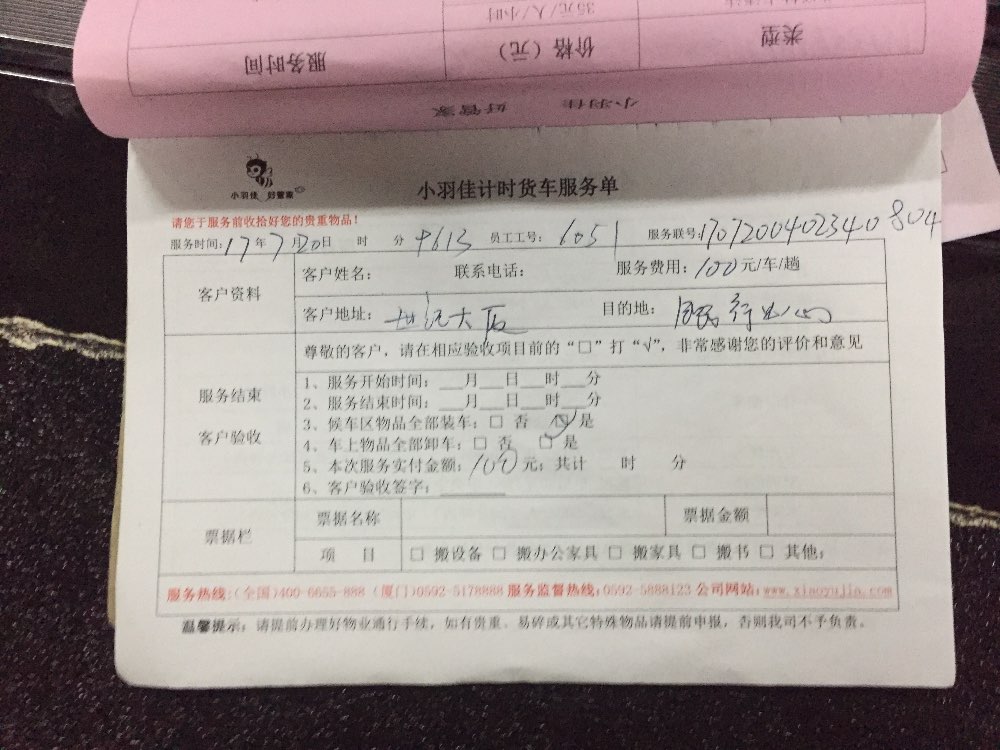 35元/人/小时
类型
价格（元）
服务时间
小羽佳 好管家
小羽佳 好管家
小羽佳计时货车服务单
请您于服务前收拾好您的贵重物品！
服务时间：17年7月20日 时 分 9613 员工工号： 6051 服务联号：170720040234 0804
客户资料
客户姓名： 联系电话： 服务费用：100元/车/趟
客户地址：世纪大厦 目的地：国际行中心
尊敬的客户，请在相应验收项目前的“□”打“√”，非常感谢您的评价和意见
服务结束
客户验收
1、服务开始时间：___月___日___时___分
2、服务结束时间：___月___日___时___分
3、候车区物品全部装车：□ 否 □ 是
4、车上物品全部卸车：□ 否 □ 是
5、本次服务实付金额：100元；共计 时 分
6、客户验收签字：______
票据栏
票据名称 票据金额
项 目 □ 搬设备 □ 搬办公家具 □ 搬家具 □ 搬书 □ 其他：
服务热线：(全国)400-6655-888 (厦门)0592-5178888 服务监督热线：0592-5888123 公司网站：www.xiaoyujia.com
温馨提示：请提前办理好物业通行手续，如有贵重、易碎或其它特殊物品请提前申报，否则我司不予负责。